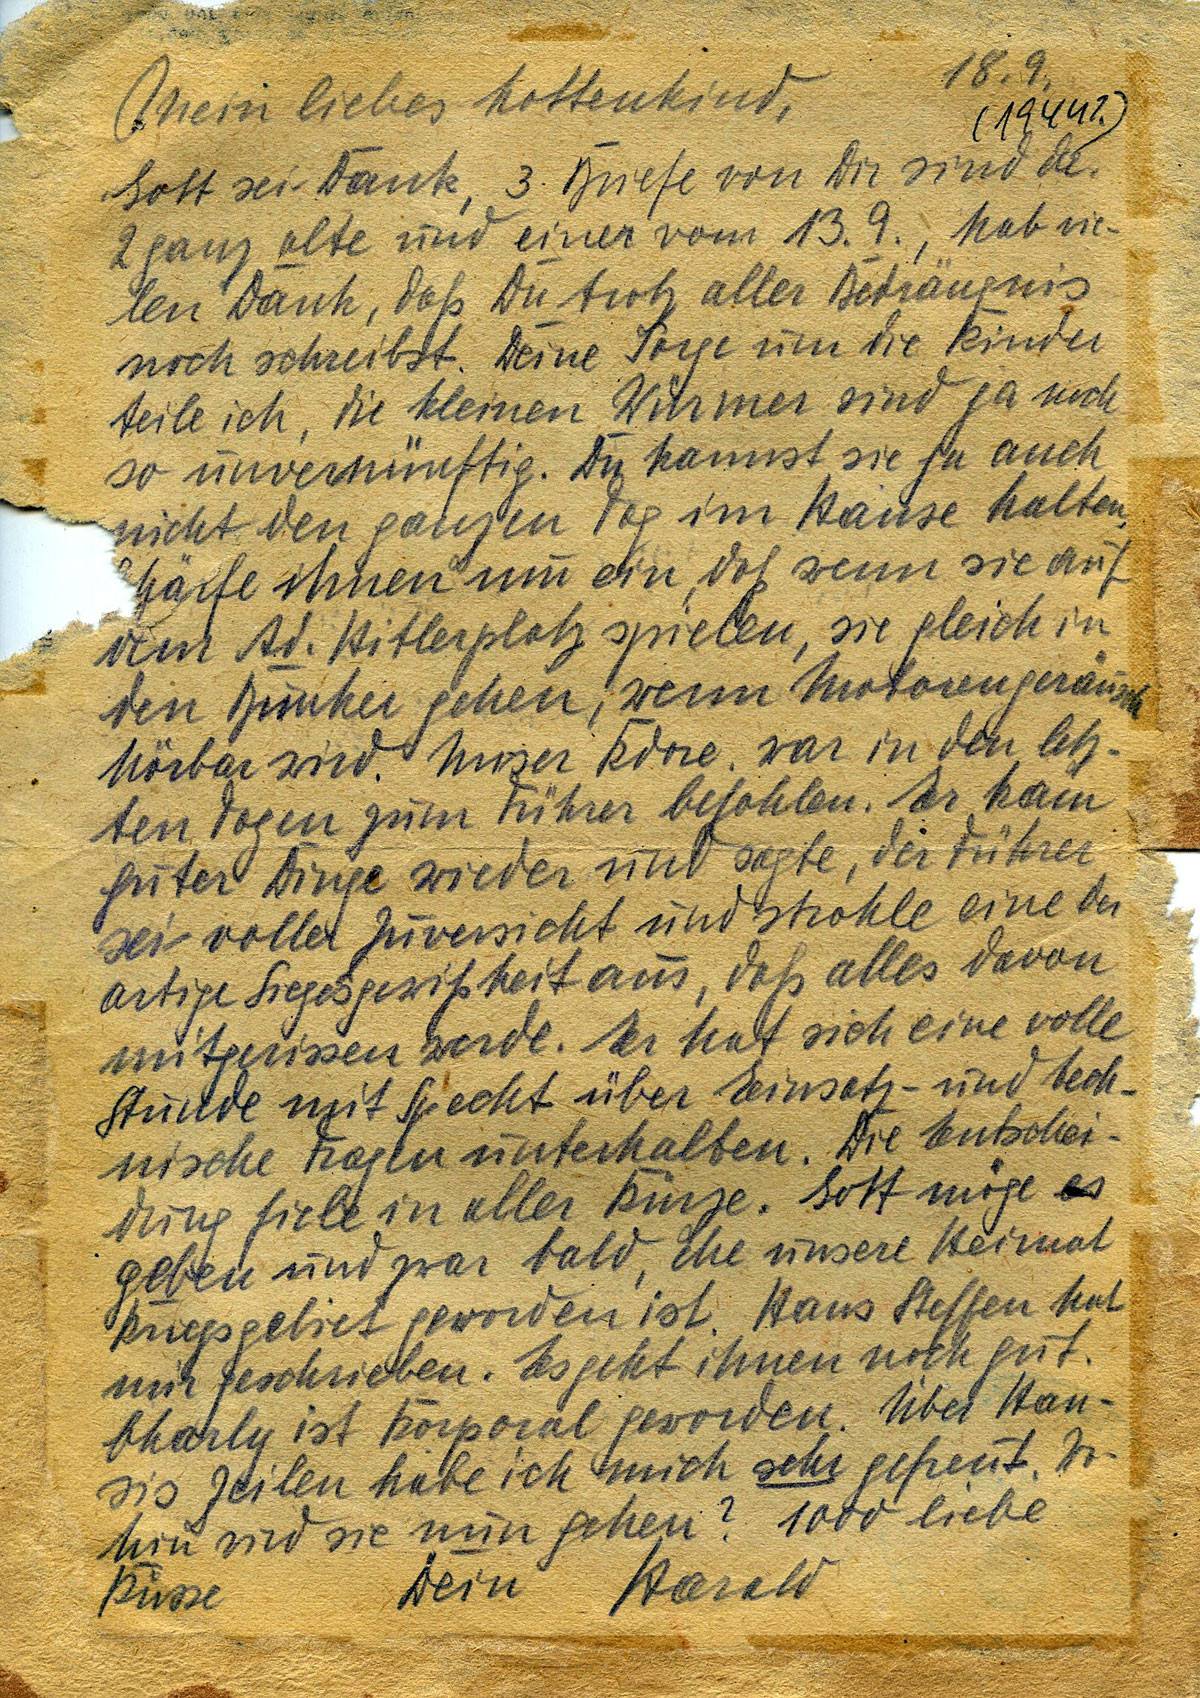 18.9.
(1944?)
Mein liebes Mottenkind,
Gott sei Dank, 3 Briefe von Dir sind da.
2 ganz alte und einer vom 13.9., hab vie-
len Dank, daß Du trotz aller Bedrängnis
noch schreibst. Deine Sorge um die Kinder
teile ich, die kleinen Würmer sind ja noch
so unvernünftig. Du kannst sie ja auch
nicht den ganzen Tag im Hause halten,
schärfe ihnen nun ein, daß wenn sie auf
dem Ad. Hitlerplatz spielen, sie gleich in
den Bunker gehen, wenn Motorengeräusch
hörbar wird. Unser Kdore. war in den letz-
ten Tagen zum Führer befohlen. Er kam
guter Dinge wieder und sagte, der Führer
sei voller Zuversicht und strahle eine der
artige Siegesgewißheit aus, daß alles davon
mitgerissen werde. Er hat sich eine volle
Stunde mit Specht über Einsatz- und tech-
nische Fragen unterhalten. Die Entschei-
dung fiele in aller Kürze. Gott möge es
geben und zwar bald, ehe unsere Heimat
Kriegsgebiet geworden ist. Hans Steffen hat
mir geschrieben. Es geht ihnen noch gut.
Charly ist Korporal geworden. Über Han-
sis Zeilen habe ich mich sehr gefreut. Wo-
hin wird sie nun gehen? 1000 liebe
Küsse Dein Harald